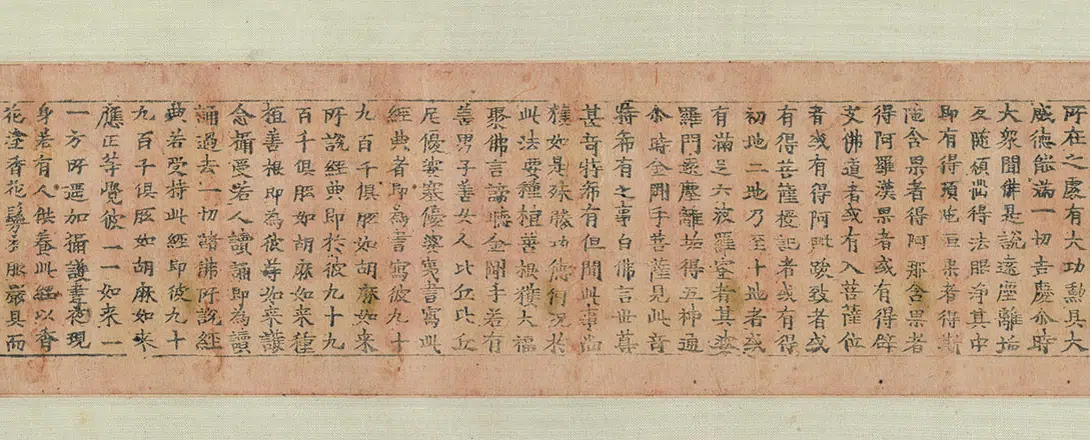 所在之處有大功勲具大
威德能滿一切吉慶尒時
大衆聞佛是說遠塵離垢
及隨煩惱得法眼淨其中
即有得須陁洹果者得斯
陁含果者得阿那含果者
得阿羅漢果者或有得辟
支佛道者或有入菩薩位
者或有得阿毗跋致者或
有得菩薩授記者或有得
初地二地乃至十地者或
有滿足六波羅蜜者其婆
羅門遠塵離垢得五神通
尒時金剛手菩薩見此奇
特希有之事白佛言世尊
甚奇特希有但聞此事尚
獲如是殊勝功德何況於
此法要種植善根獲大福
聚佛言諦聽金剛手若有
善男子善女人比丘比丘
尼優婆塞優婆夷書寫此
經典者即為書寫彼九十
九百千俱胝如胡麻如来
所說經典即於彼九十九
百千俱胝如胡麻如来種
植善根即為彼等如来護
念攝受若人讀誦即為讀
誦過去一切諸佛所說經
典若受持此經即彼九十
九百千俱胝如胡麻如来
應正等覺彼一一如来一
一方所遥加攝護晝夜現
身若有人供養此經以香
花塗香花鬘衣服嚴具而